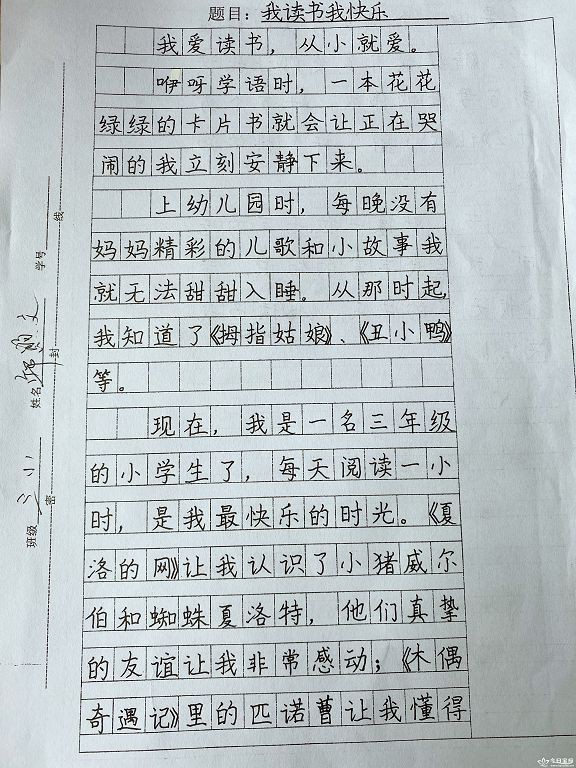 题目：我读书我快乐
我爱读书，从小就爱。
咿呀学语时，一本花花
绿绿的卡片书就会让正在哭
闹的我立刻安静下来。
上幼儿园时，每晚没有
妈妈精彩的儿歌和小故事我
就无法甜甜入睡。从那时起，
我知道了《拇指姑娘》、《丑小鸭》
等。
现在，我是一名三年级
的小学生了，每天阅读一小
时，是我最快乐的时光。《夏
洛的网》让我认识了小猪威尔
伯和蜘蛛夏洛特，他们真挚
的友谊让我非常感动；《木偶
奇遇记》里的匹诺曹让我懂得
班级
姓名
学号
密
封
线
今日宝母